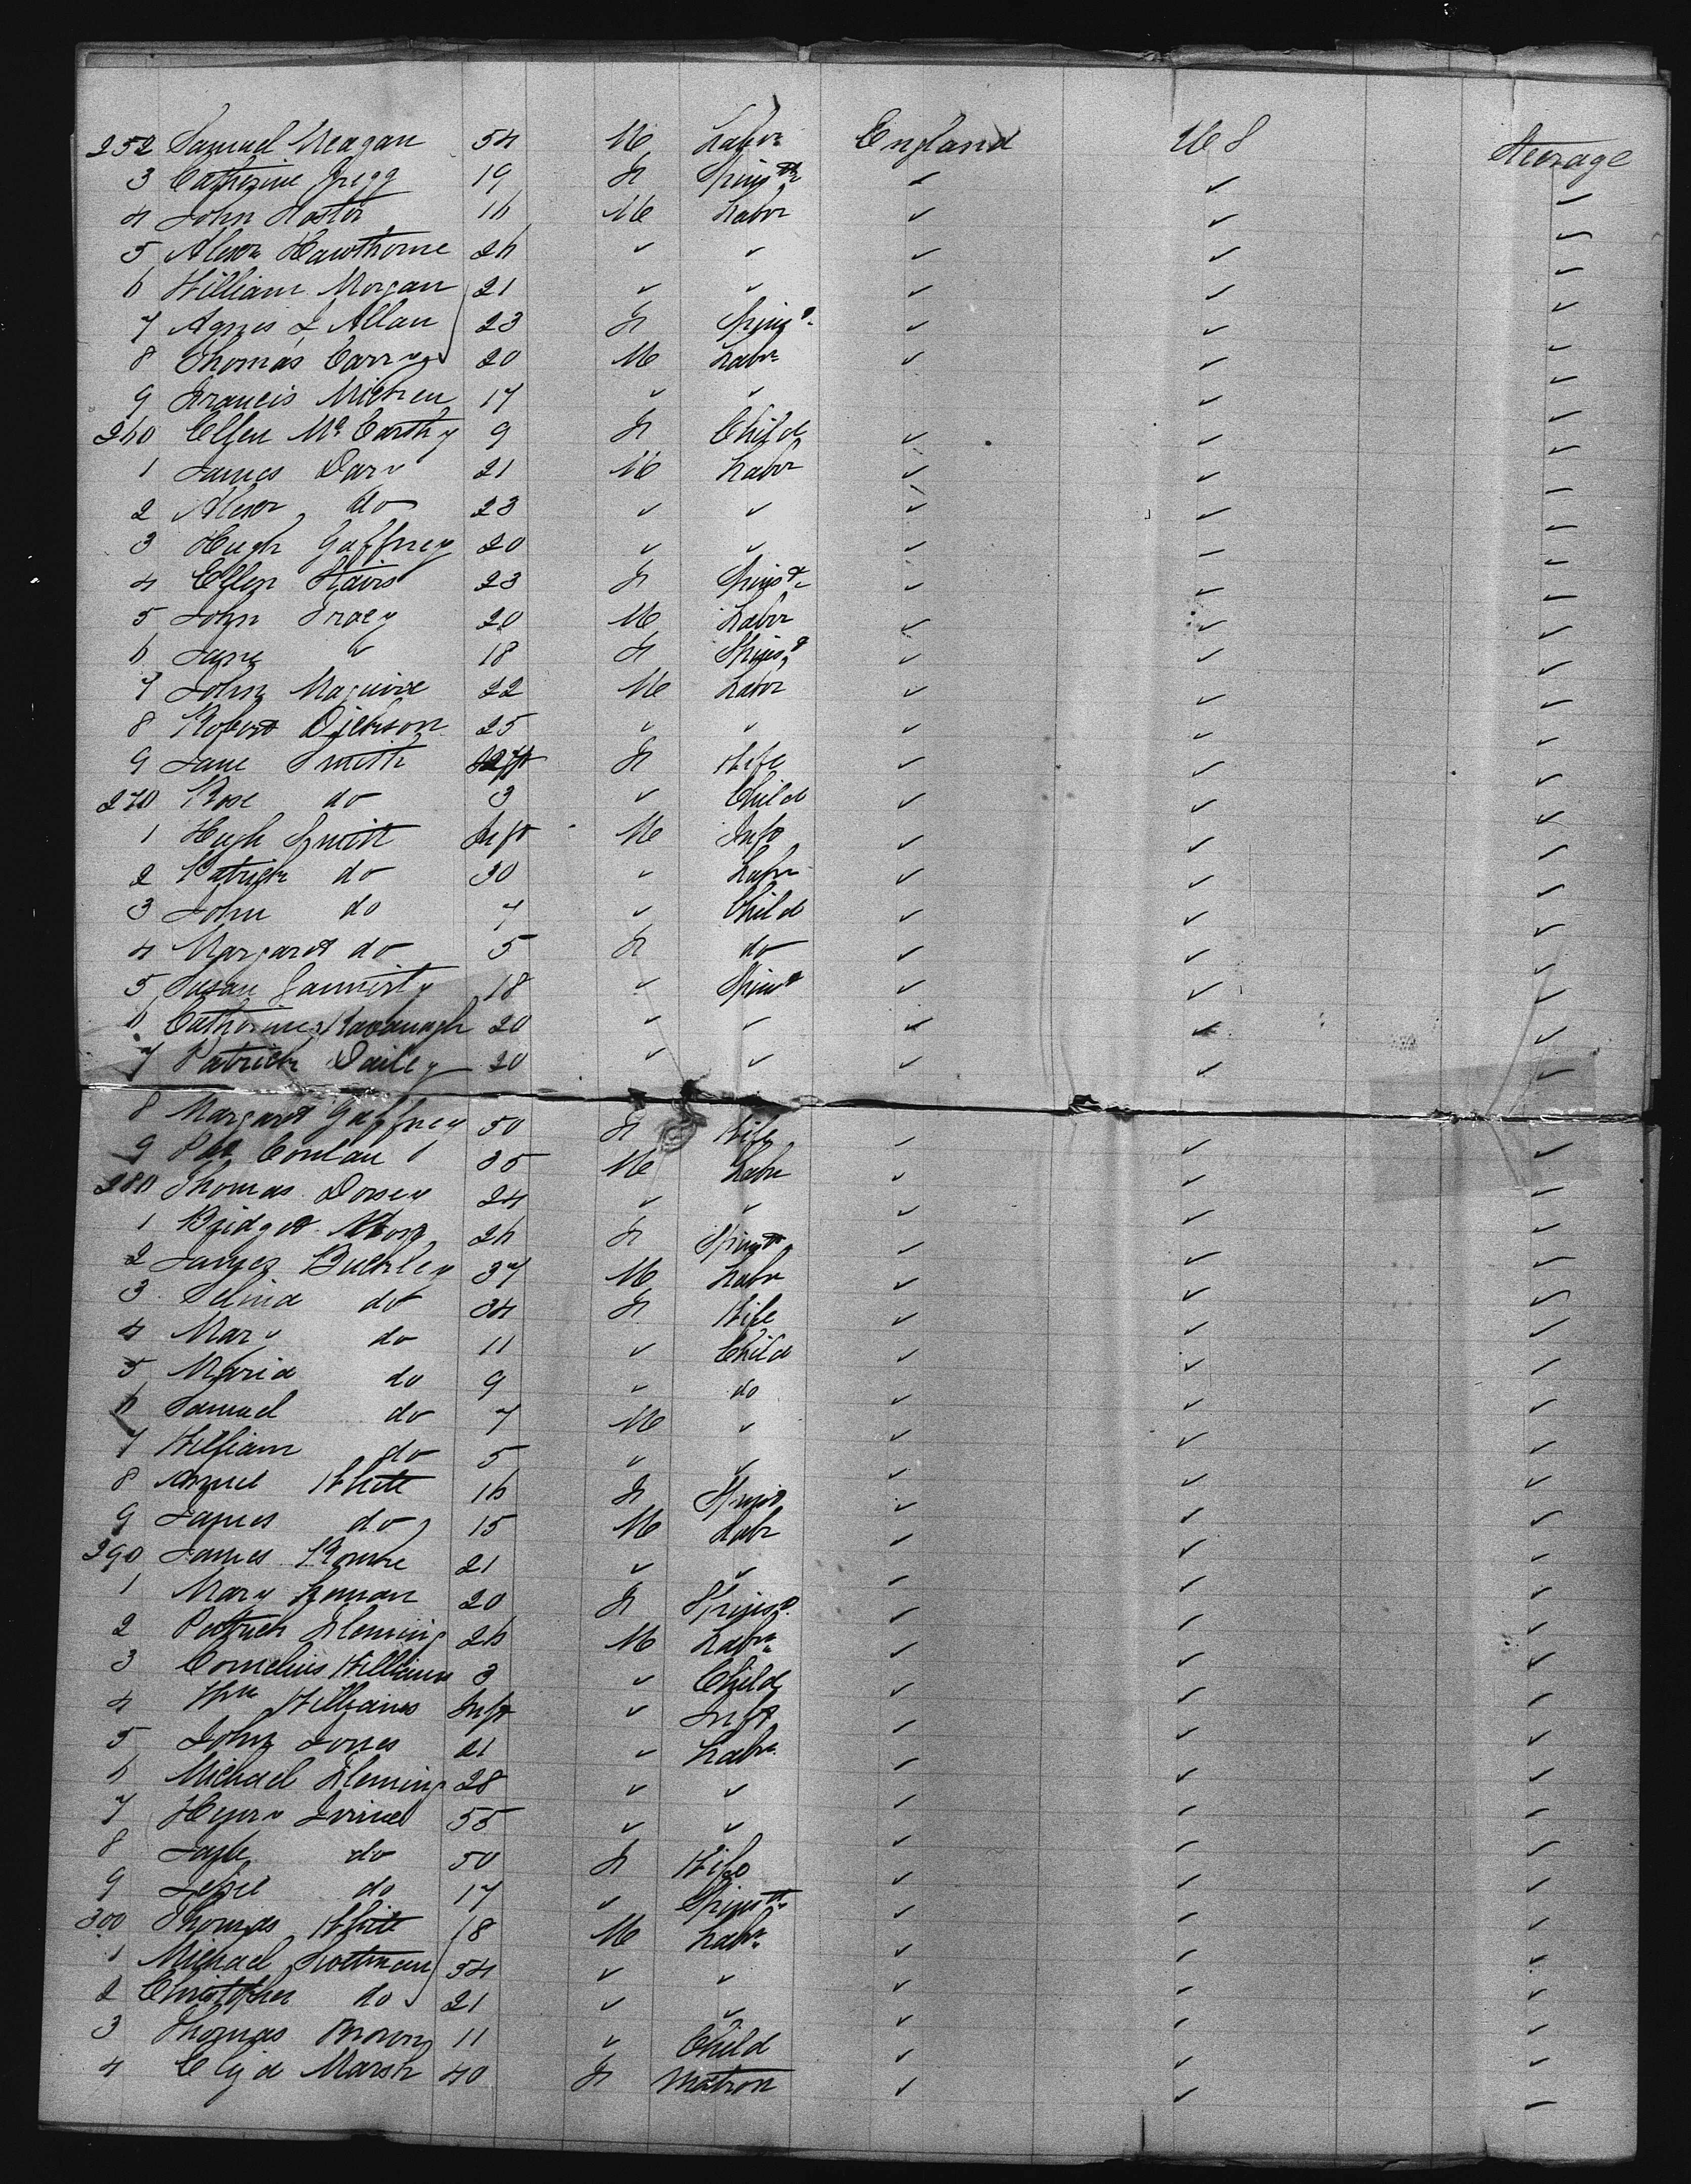 252 Samuel Meagan 54 M Labr England U S Steerage
3 Catherine Gregg 19 F Spinstr ✓ ✓ ✓
4 John Foster 16 M Labr ✓ ✓ ✓
5 Alexr Hawthorne 26 ✓ ✓ ✓ ✓ ✓
6 William Morgan 21 ✓ ✓ ✓ ✓ ✓
7 Agnes L Allan 23 F Spinst ✓ ✓ ✓
8 Thomas Carr 20 M Labr ✓ ✓ ✓
9 Francis 17 ✓ ✓ ✓ ✓ ✓
260 Ellen Mc Carthy 9 F Child ✓ ✓ ✓
1 James 21 M Labr ✓ ✓ ✓
2 Alexr do 23 ✓ ✓ ✓ ✓ ✓
3 Hugh Gaffney 20 ✓ ✓ ✓ ✓ ✓
4 Ellen Stairs 23 F Spinst ✓ ✓ ✓
5 John Tracy 20 M Labr ✓ ✓ ✓
6 Jane ✓ 18 F Spinst ✓ ✓ ✓
7 John Maguire 22 M Labr ✓ ✓ ✓
8 Robert Dickson 25 ✓ ✓ ✓ ✓ ✓
9 Jane Smith F Wife ✓ ✓ ✓
270 Rose do 3 ✓ Child ✓ ✓ ✓
1 Hugh Smith Inft M Inft ✓ ✓ ✓
2 Patrick do 30 ✓ Labr ✓ ✓ ✓
3 John do 7 ✓ Child ✓ ✓ ✓
4 Margaret do 5 F do ✓ ✓ ✓
5 Susan 18 ✓ Spinst ✓ ✓ ✓
6 Catherine Kavanagh 20 ✓ ✓ ✓ ✓ ✓
7 Patrick Dailey 20 ✓ ✓ ✓ ✓ ✓
8 Margaret Gaffney 50 F Wife ✓ ✓ ✓
9 Pat Conlan 35 M Labr ✓ ✓ ✓
280 Thomas Dorsey 24 ✓ ✓ ✓ ✓ ✓
1 Bridget 26 F Spinst ✓ ✓ ✓
2 James Buckley 37 M Labr ✓ ✓ ✓
3 Selina do 34 F Wife ✓ ✓ ✓
4 Mary do 11 ✓ Child ✓ ✓ ✓
5 Maria do 9 ✓ do ✓ ✓ ✓
6 Samuel do 7 M ✓ ✓ ✓ ✓
7 William do 5 ✓ ✓ ✓ ✓ ✓
8 Annie White 16 F Spinst ✓ ✓ ✓
9 James do 15 M Labr ✓ ✓ ✓
290 James 21 ✓ ✓ ✓ ✓ ✓
1 Mary 20 F Spinst ✓ ✓ ✓
2 Patrick Fleming 26 M Labr ✓ ✓ ✓
3 Cornelius Williams 3 ✓ Child ✓ ✓ ✓
4 Wm Williams Inft ✓ Inft ✓ ✓ ✓
5 John Jones 21 ✓ Labr ✓ ✓ ✓
6 Michael Fleming 28 ✓ ✓ ✓ ✓ ✓
7 Henry Irvine 55 ✓ ✓ ✓ ✓ ✓
8 Jane do 50 F Wife ✓ ✓ ✓
9 do 17 ✓ Spinstr ✓ ✓ ✓
300 Thomas White 18 M Labr ✓ ✓ ✓
1 Michael 54 ✓ ✓ ✓ ✓ ✓
2 Christopher do 21 ✓ ✓ ✓ ✓ ✓
3 Thomas Brown 11 ✓ Child ✓ ✓ ✓
4 Eliza Marsh 40 F Matron ✓ ✓ ✓